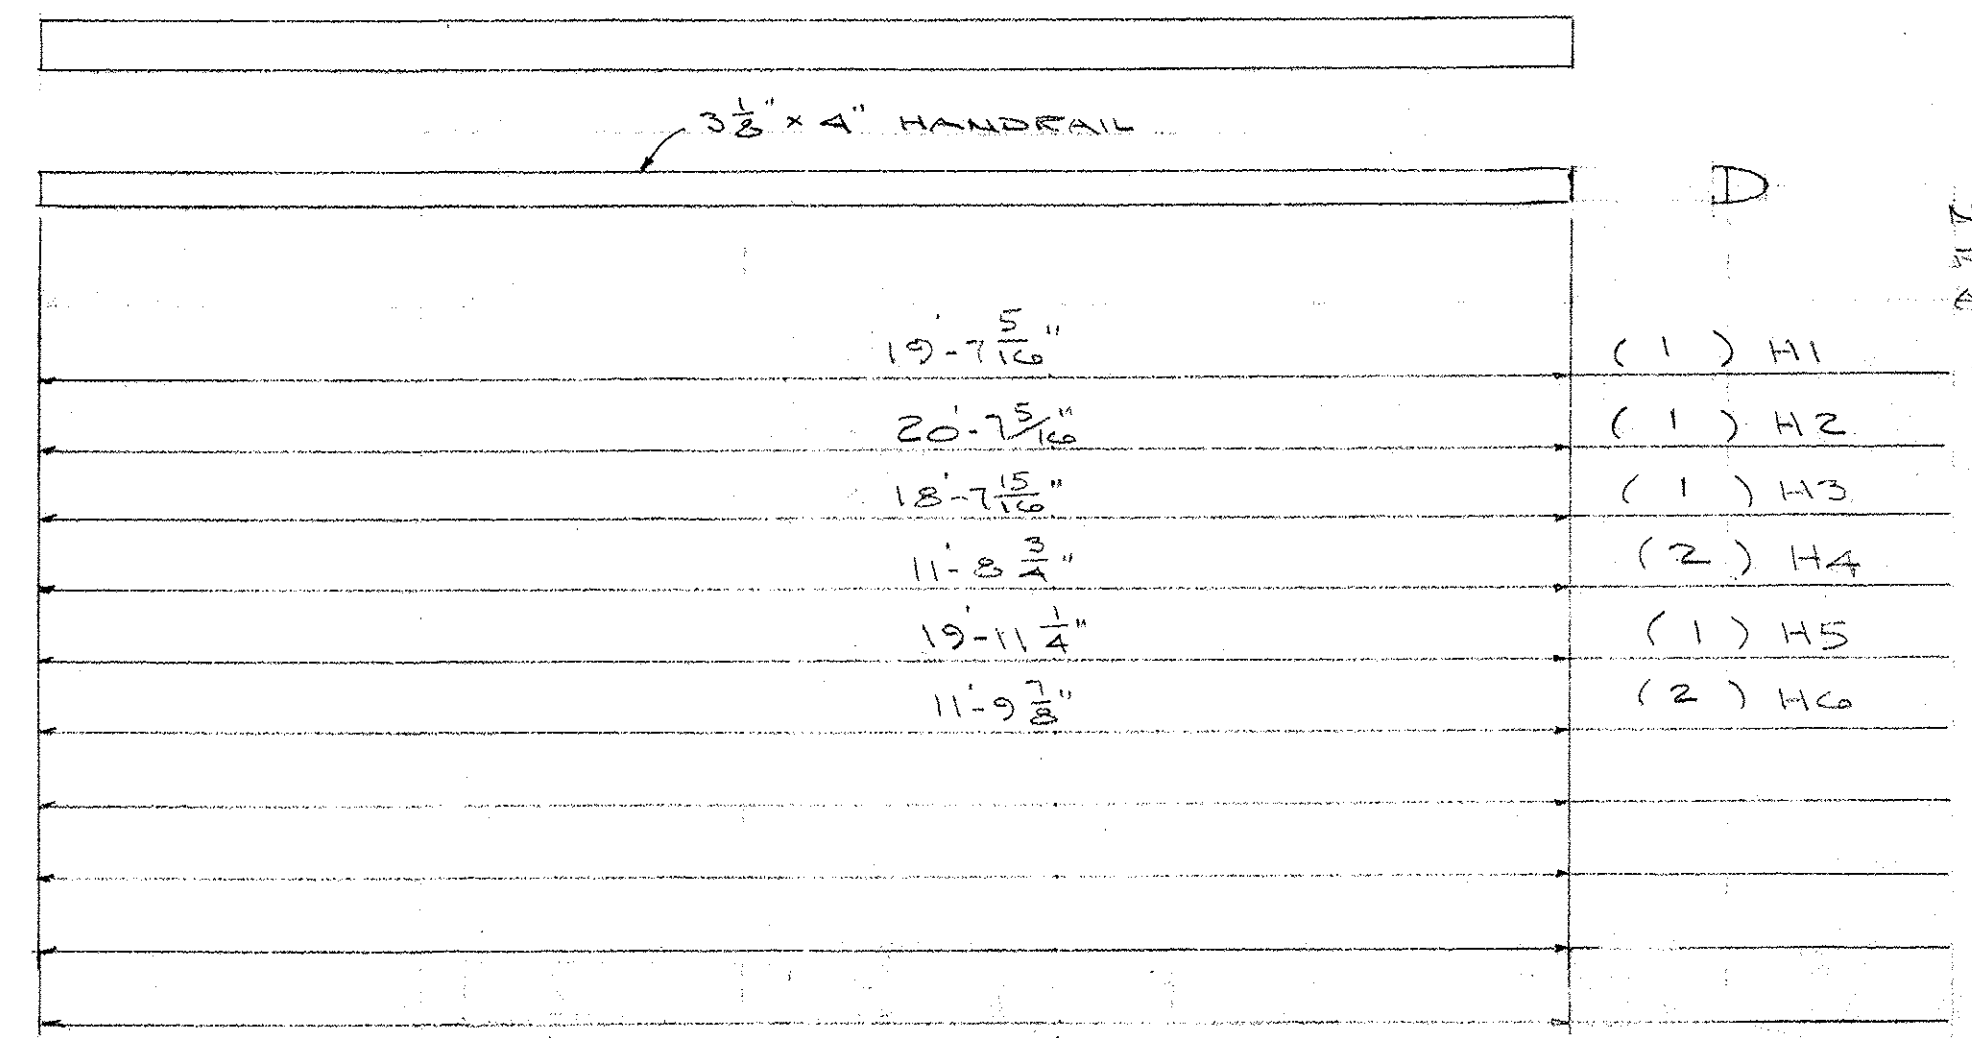 3 1/8" × 4" HANDRAIL
19'-7 5/16" (1) H1
20'-7 5/16" (1) H2
18'-7 15/16" (1) H3
11'-8 3/4" (2) H4
19'-11 1/4" (1) H5
11'-9 7/8" (2) H6